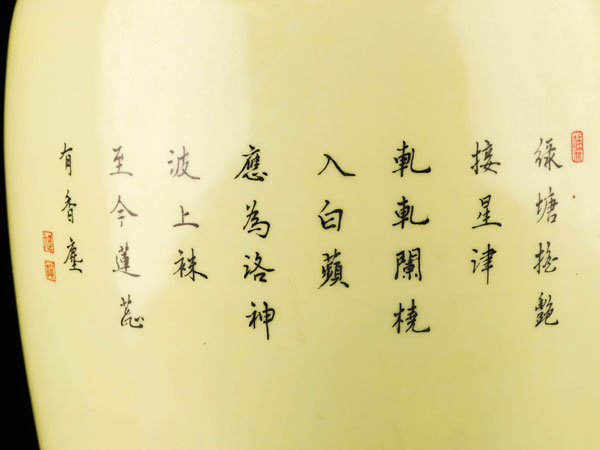 綠塘搖艷
接星津
軋軋闌橈
入白蘋
應為洛神
波上袜
至今蓮蕊
有香塵